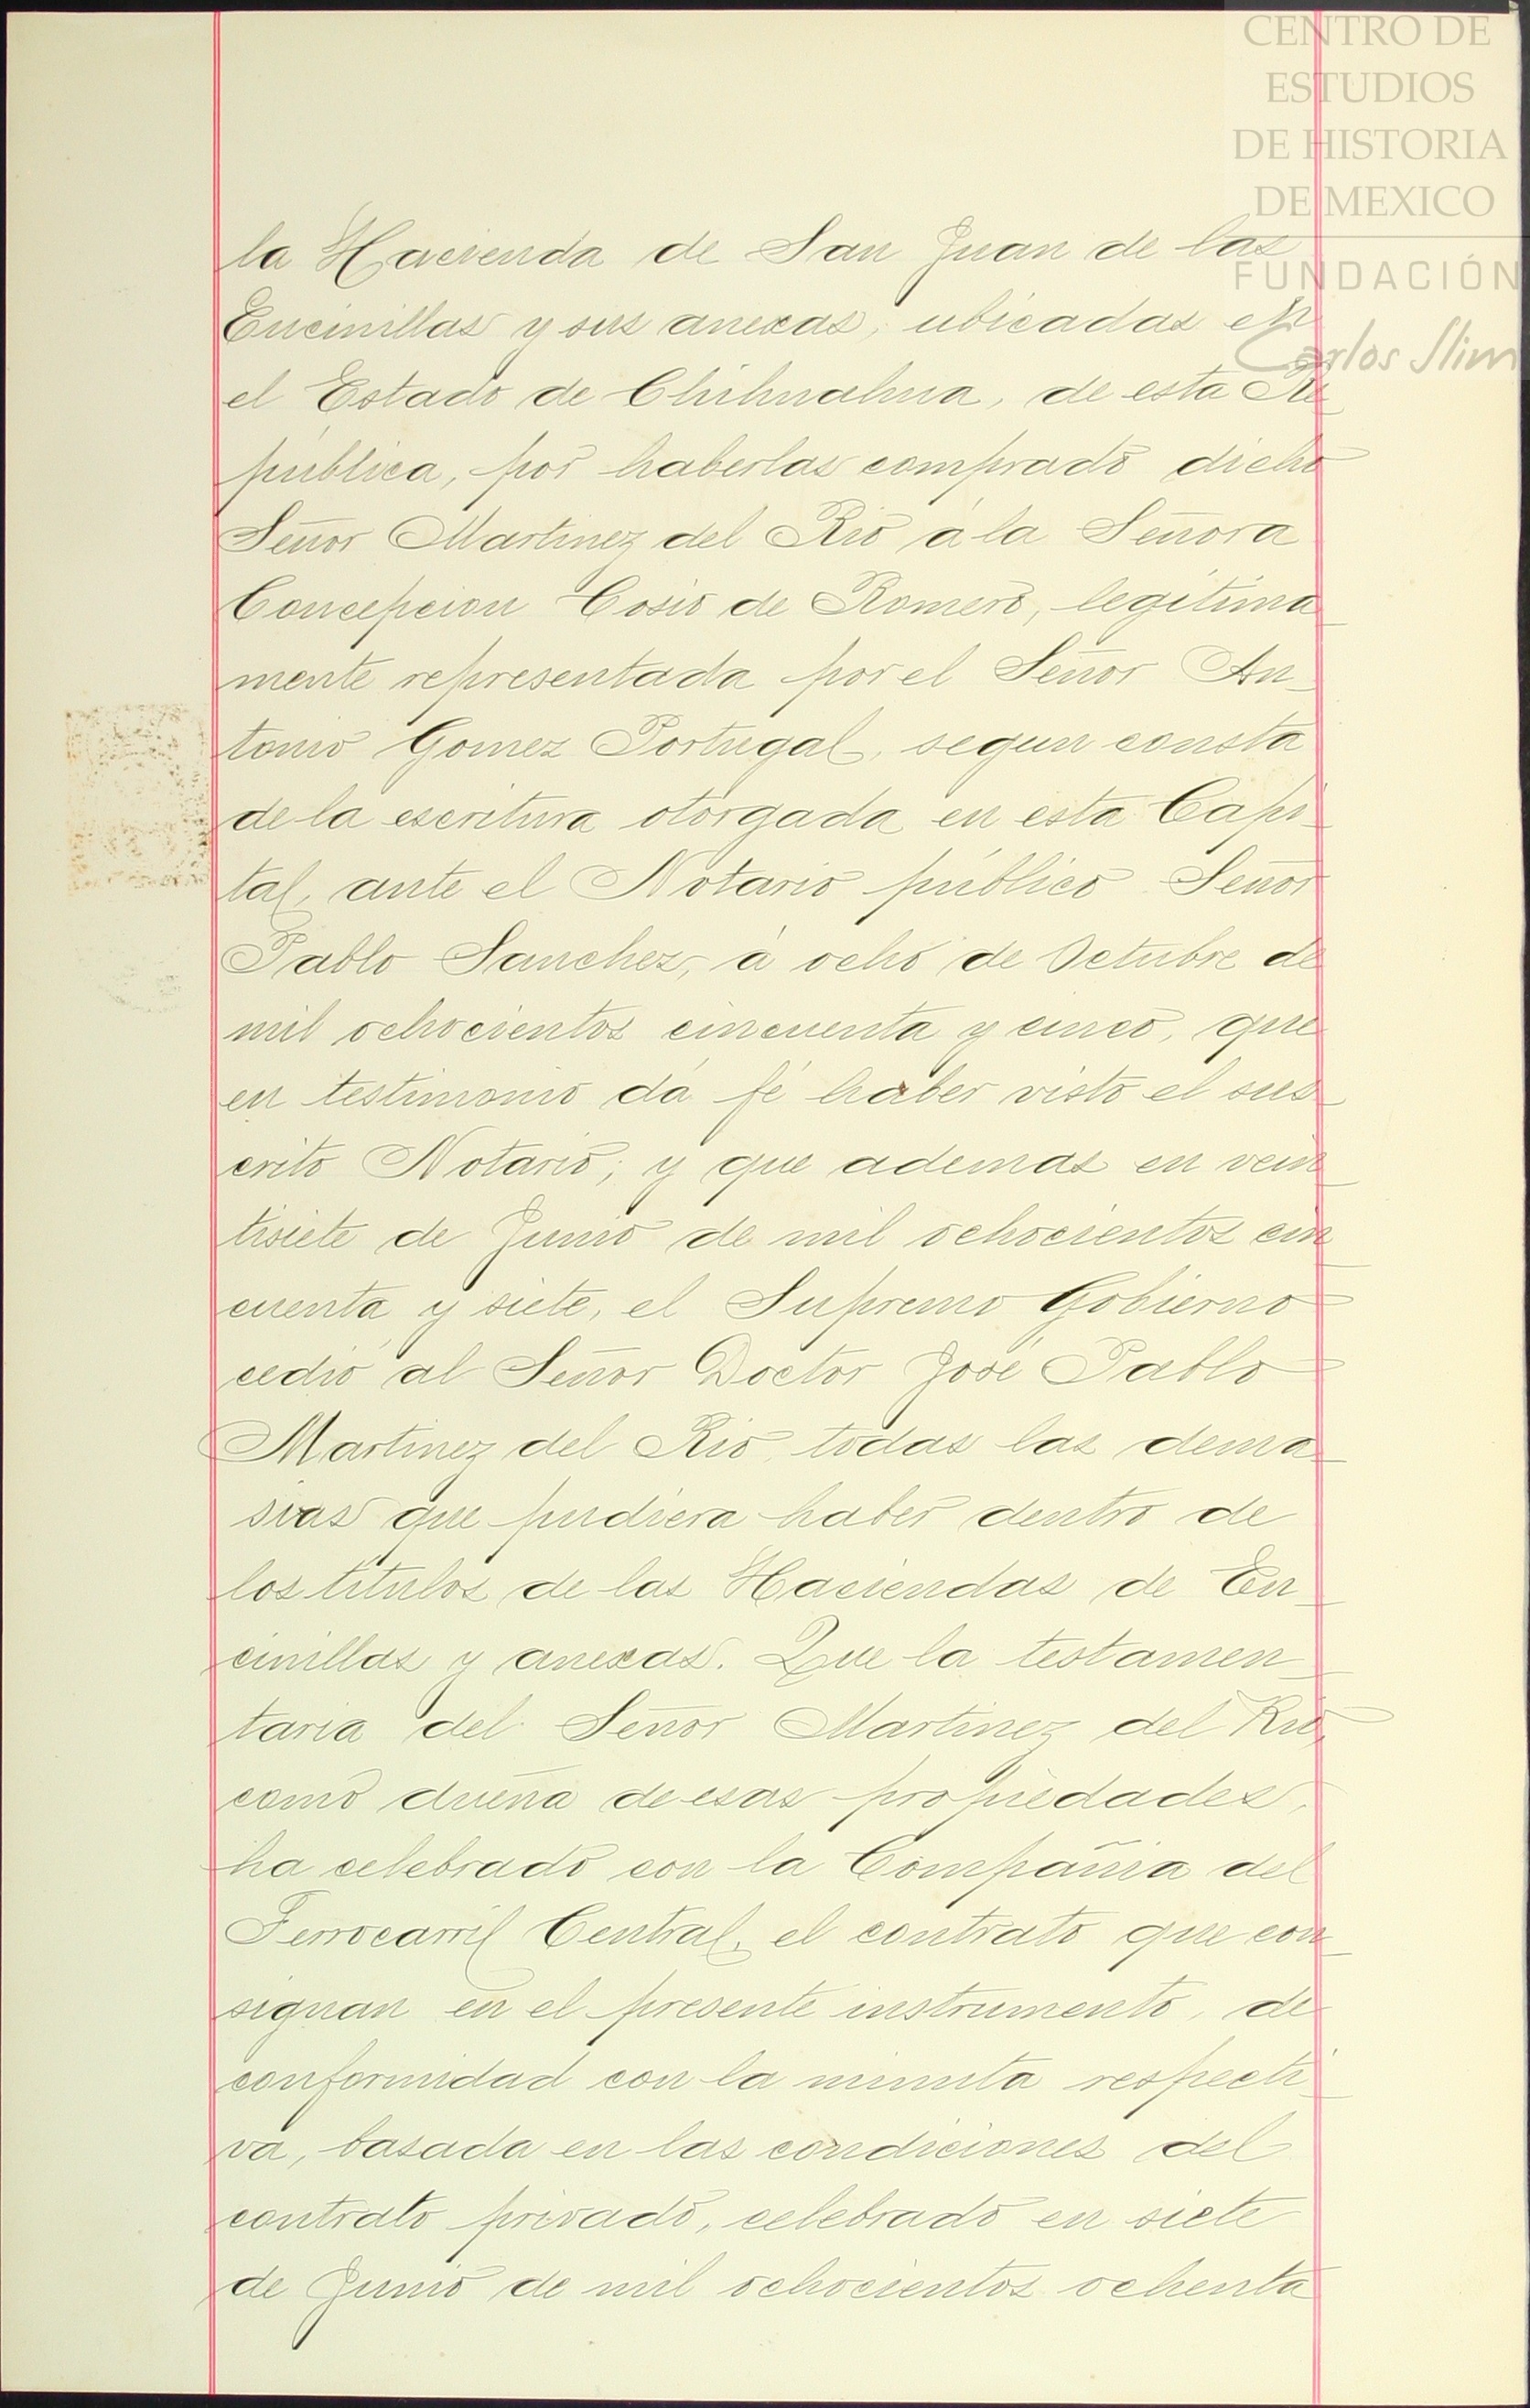 CENTRO DE
ESTUDIOS
DE HISTORIA
DE MEXICO
FUNDACIÓN
Carlos Slim
la Hacienda de San Juan de las
Encinillas y sus anexas, ubicadas en
el Estado de Chihuahua, de esta Re
pública, por haberlas comprado dicho
Señor Martinez del Rio á la Señora
Concepcion Cosio de Romero, legítima
mente representada por el Señor An-
tonio Gomez Portugal, segun consta
de la escritura otorgada en esta Capi-
tal, ante el Notario público Señor
Pablo Sanchez, á ocho de Octubre de
mil ochocientos cincuenta y cinco, que
en testimonio dá fé haber visto el sus-
crito Notario; y que ademas en vein
tisiete de Junio de mil ochocientos cin
cuenta y siete, el Supremo Gobierno
cedió al Señor Doctor José Pablo
Martinez del Rio, todas las dema-
sias que pudiera haber dentro de
los títulos de las Haciendas de En-
cinillas y anexas. Que la testamen-
taria del Señor Martinez del Rio,
como dueña de esas propiedades,
ha celebrado con la Compañia del
Ferrocarril Central, el contrato que con-
signan en el presente instrumento, de
conformidad con la minuta respecti-
va, basada en las condiciones del
contrato privado, celebrado en siete
de Junio de mil ochocientos ochenta